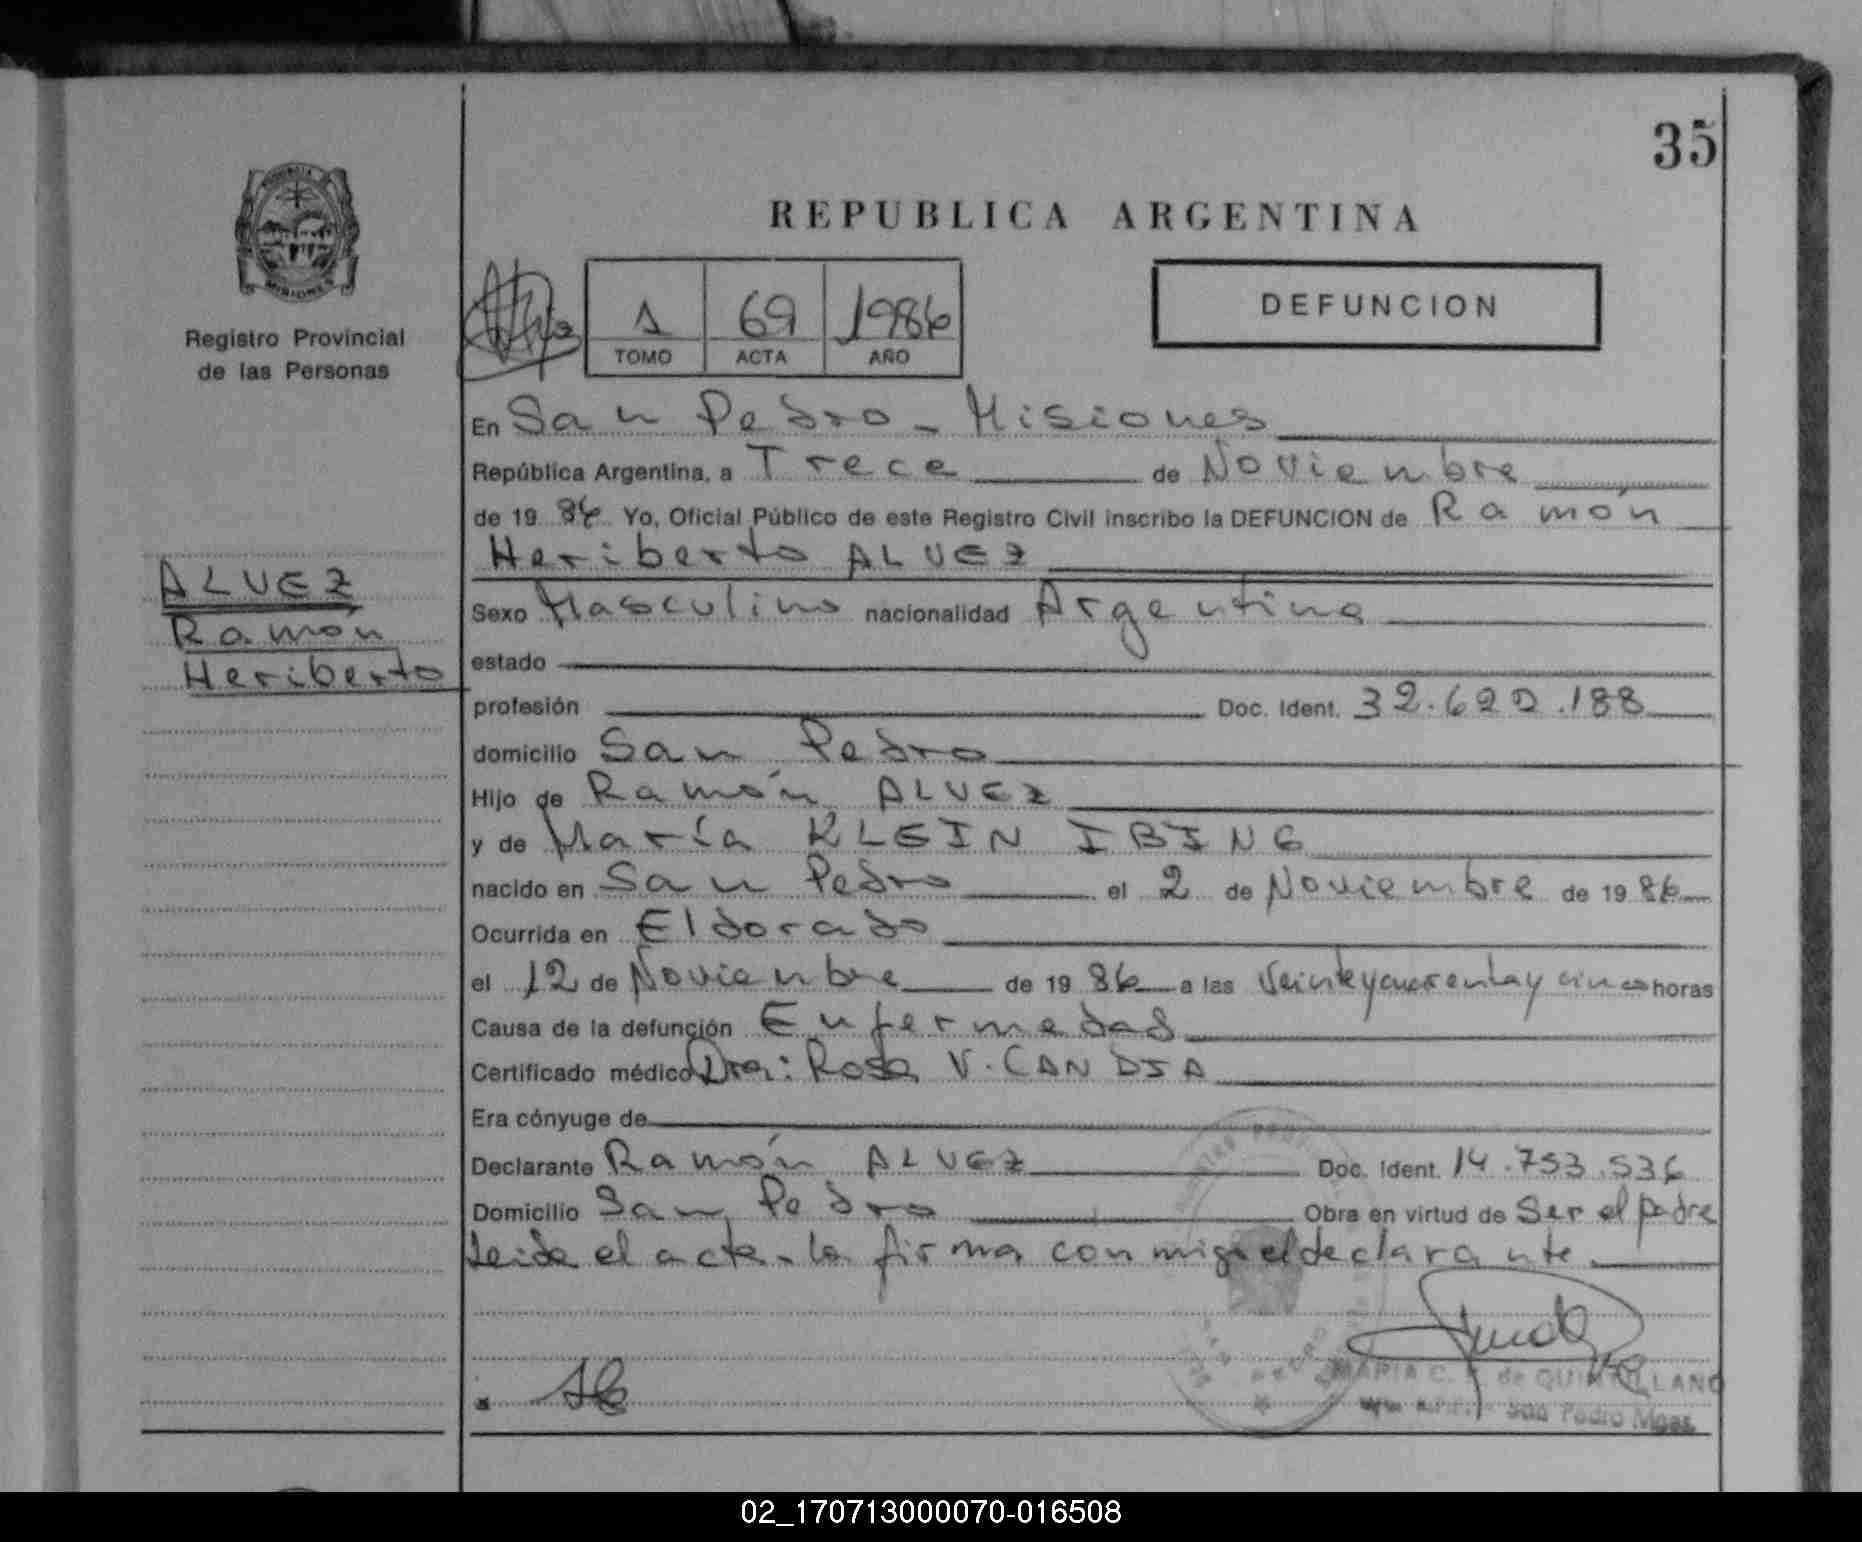 35
REPUBLICA ARGENTINA
PROVINCIA
MISIONES
Registro Provincial
de las Personas
1 69 1986
TOMO ACTA AÑO
DEFUNCION
En San Pedro - Misiones
República Argentina, a Trece de Noviembre
de 19 86 Yo, Oficial Público de este Registro Civil inscribo la DEFUNCION de Ramón
Heriberto ALVEZ
ALVEZ
Ramón
Heriberto
Sexo Masculino nacionalidad Argentina
estado
profesión Doc. Ident. 32.622.188
domicilio San Pedro
Hijo de Ramón ALVEZ
y de María KLEIN IBING
nacido en San Pedro el 2 de Noviembre de 19 86
Ocurrida en Eldorado
el 12 de Noviembre de 19 86 a las Veinteycuarentay cinco horas
Causa de la defunción Enfermedad
Certificado médico Dra: Rosa V. CANDIA
Era cónyuge de
Declarante Ramón ALVEZ Doc. Ident. 14.753.536
Domicilio San Pedro Obra en virtud de Ser el padre
Leida el acta la firma con migo el declarante
MARIA C. de QUINTILLANO
San Pedro Mnes.
02_170713000070-016508